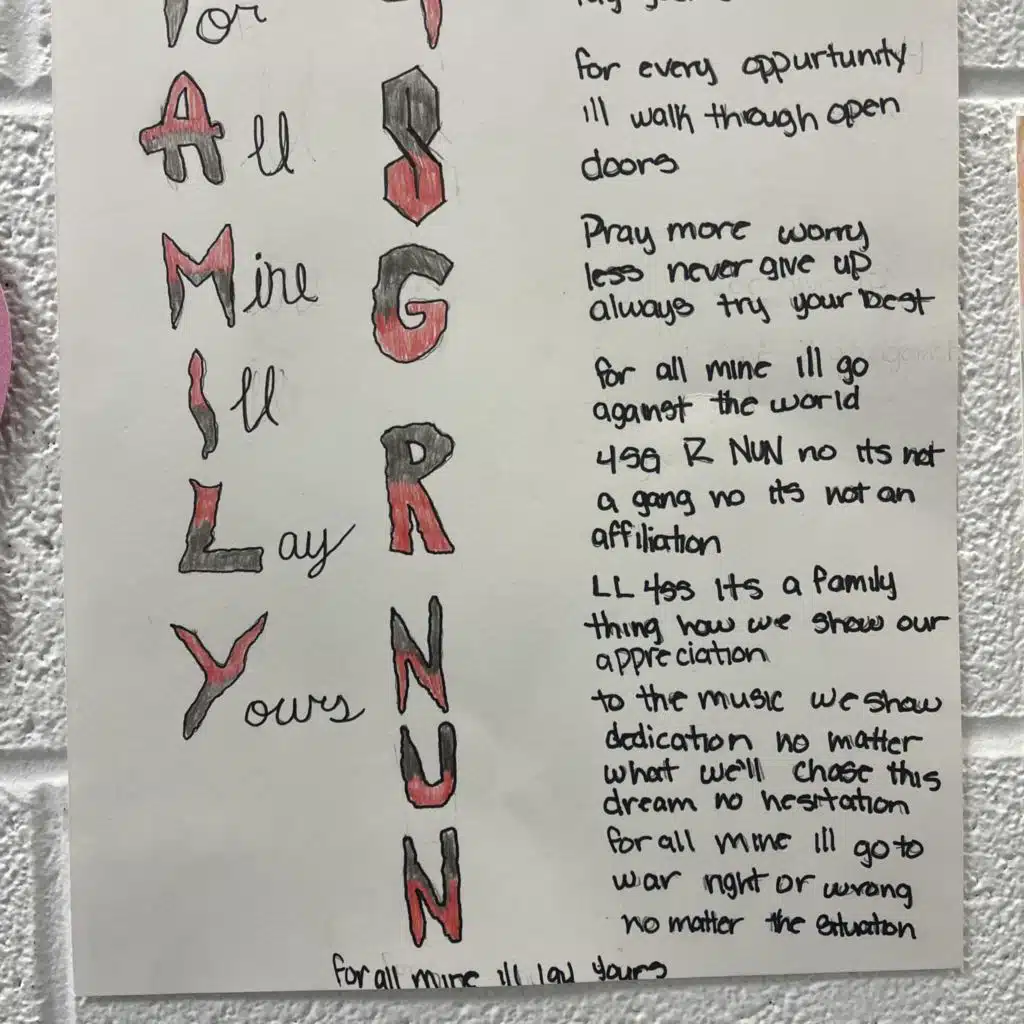 For
All
Mine
Ill
Lay
Yours
4
S
G
R
N
U
N
for every oppurtunity
ill walk through open
doors
Pray more worry
less never give up
always try your best
for all mine ill go
against the world
4SG R NUN no its not
a gang no its not an
affiliation
LL 4ss its a family
thing how we show our
appreciation
to the music we show
dedication no matter
what we'll chase this
dream no hesitation
for all mine ill go to
war right or wrong
no matter the situation
for all mine ill lay yours